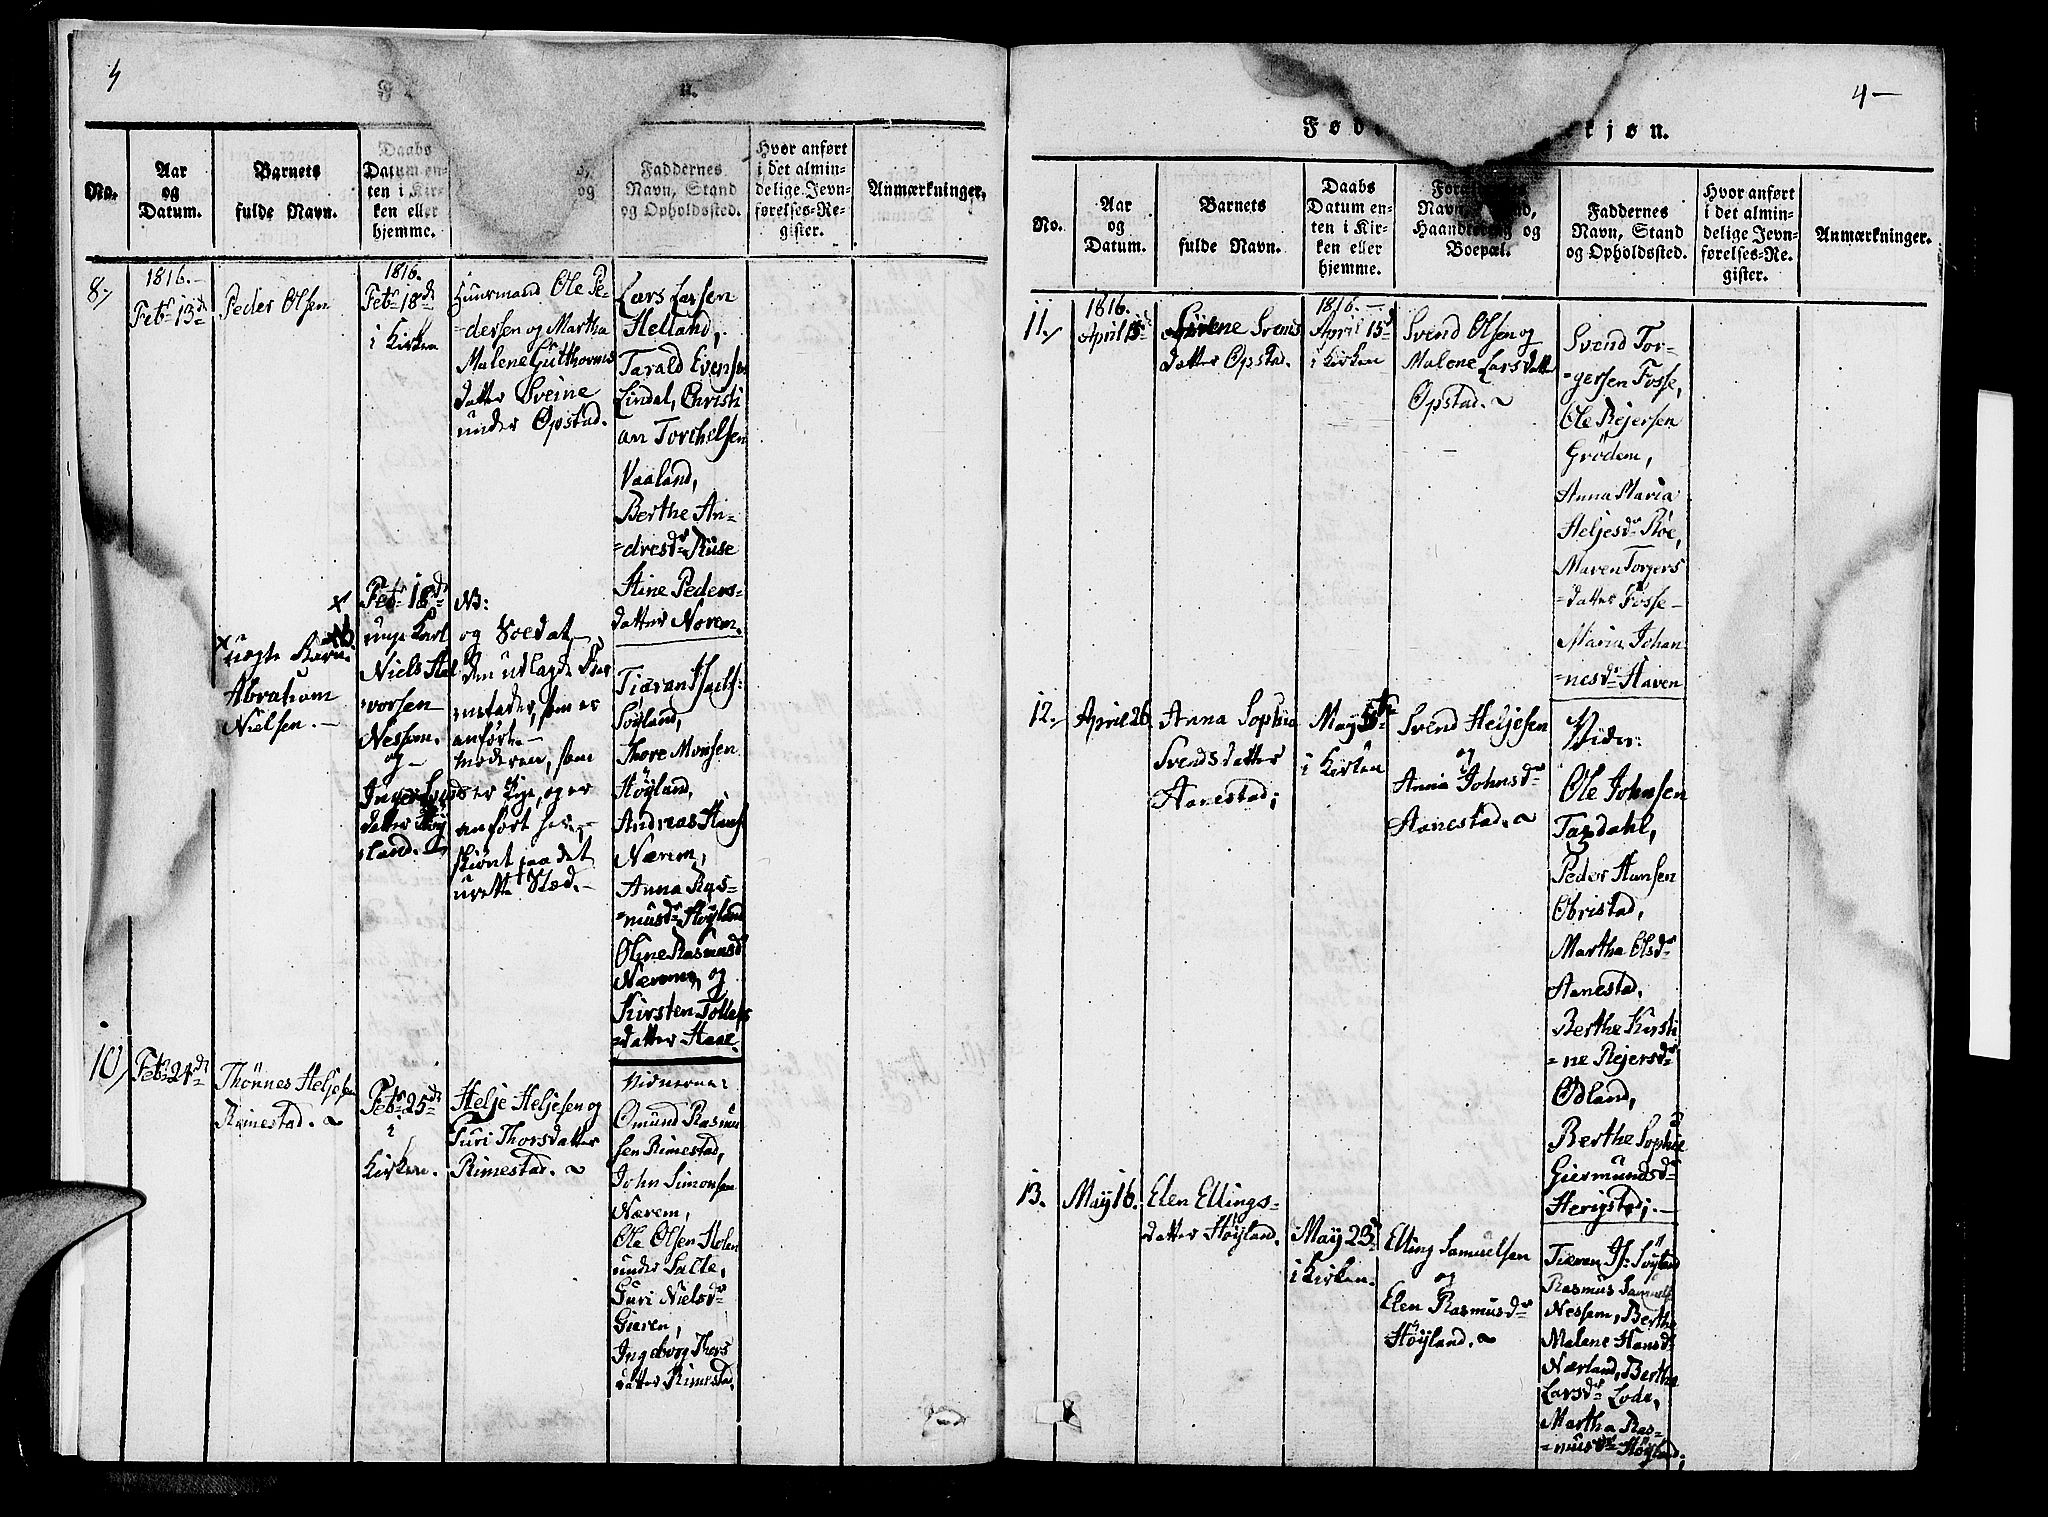 4
n.
No.
Aar
og
Datum.
Barnets
fulde Navn.
Daabs
Datum en-
ten i Kir-
ken eller
hjemme.
og
Faddernes
Navn, Stand
og Opholdssted.
Hvor anført
i det almin-
delige Jevn-
førelses-Re-
gister.
Anmærkninger.
8.
1816.-
Febr 13de
Peder Olsen
1816.
Febr 18de
i Kirken
Huusmand Ole Pe-
dersen og Martha
Malene Gutthorms
datter Sveine
under Opstad.
Lars Larsen
Helland,
Tarald Evensen
Lindal, Christi
an Torchelsen
Vaaland,
Berthe An-
=dresdr Ruse
Stine Peders-
datter Norem.
x uægte Barn
Abraham
Nielsen.-
Febr 18de
unge Karl
Niels Hal
vorsen
Nessem.
og
datter Høy
land.
NB:
og Soldat
den udlagde Bar
nefader, som er
anførte
moderen, som
er Pige, og er
anført her,
skiønt paa det
urette Sted.-
Søyland,
Thore Monsen
Høyland,
Andreas Hans
Nærem,
Anna Ras-
=musdr Høyland
Oline Rasmusd
Nærem, og
Kirsten Tollefs
=datter Haae.
10
Febr 24de
Thönnes Heljesen
Rimestad.
Febr 25de
i
Kirken.
Helje Heljesen og
Guri Thorsdatter
Rimestad.
Vidnerne:
Omund Rasmu
sen Rimestad,
John Simonsen
Nærem,
Ole Olsen Holen
under Salte,
Guri Nielsdr
Gieren,
Ingeborg Thors
datter Rimestad.
4-
Fød kjøn.
No.
Aar
og
Datum.
Barnets
fulde Navn.
Daabs
Datum en-
ten i Kir-
ken eller
hjemme.
Forældrenes
Navn, Stand,
Haandtering og
Boepæl.
Faddernes
Navn, Stand
og Opholdssted.
Hvor anført
i det almin-
delige Jevn-
førelses-Re-
gister.
Anmærkninger.
11.
1816.
April
Sirene Svens
datter Opstad.
1816.-
April 15de
i Kirken
Svend Olsen og
Malene Larsdatter
Opstad.
Svend Tor-
=gersen Fosse,
Ole Rejersen
Grödem,
Anna Maria
Heljesdr Röe,
Maren Torjers
=datter Fosse-
Maria Johan
=nesdr Haven
12.
April 26
Anna Sophia
Svendsdatter
Aanestad;
May 5te
i Kirken
Svend Heljesen
og
Anna Johnsdr
Aanestad.
Vidn:
Ole Johnsen
Taxdahl,
Peder Hansen
Obrestad,
Martha Olsdr
Aanestad,
Berthe Kirsti
=ne Rejersdr
Ödland,
Berthe Sophie
Giermundsdr
Herigstad;
13.
May 16.
Elen Ellings-
datter Høyland.
May 23
i Kirken.
Elling Samuelsen
og
Elen Rasmusdr
Høyland.
Rasmus Samuels
Nessem, Berthe
Malene Hansdr
Nærland, Berthe
Larsdr Lode,
Martha Ras-
=musdr Høyland;